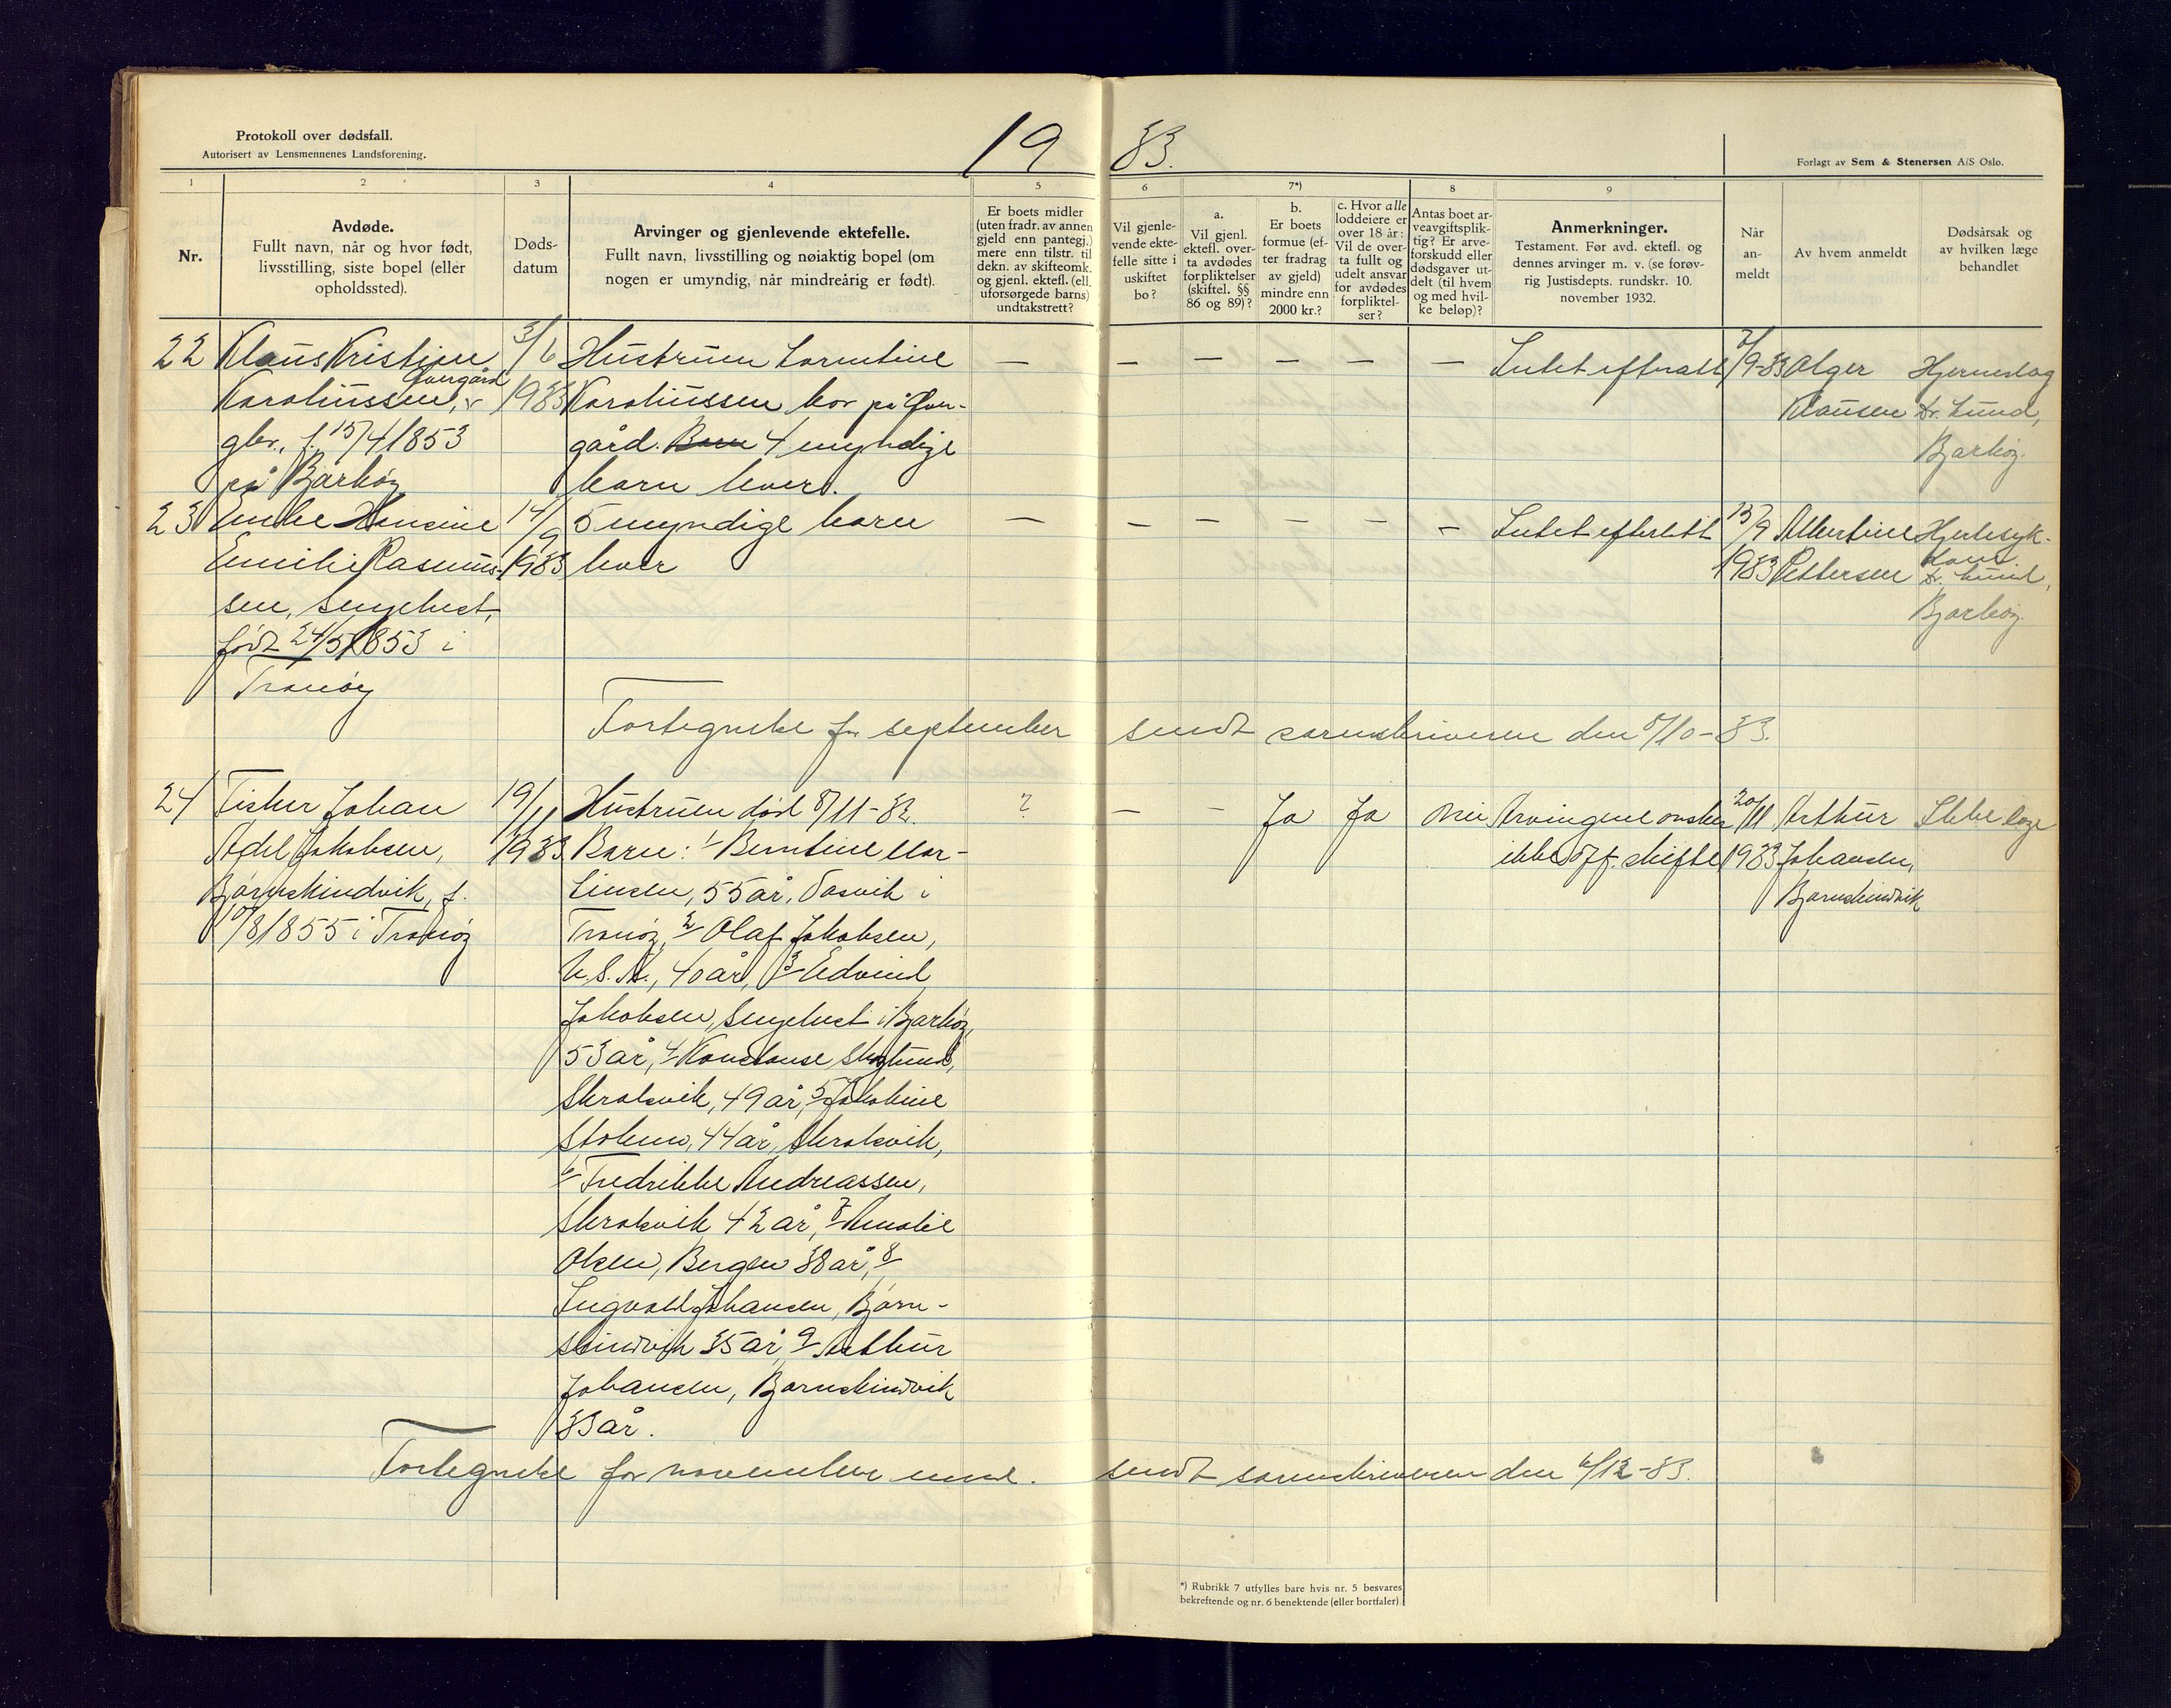 Protokoll over dødsfall.
Autorisert av Lensmennenes Landsforening.
19 33.
Forlagt av Sem & Stenersen A/S Oslo.
1 2 3 4 5 6 7*) 8 9
Nr.
Avdøde.
Fullt navn, når og hvor født,
livsstilling, siste bopel (eller
opholdssted).
Døds-
datum
Arvinger og gjenlevende ektefelle.
Fullt navn, livsstilling og nøiaktig bopel (om
nogen er umyndig, når mindreårig er født).
Er boets midler
(uten fradr. av annen
gjeld enn pantegj.)
mere enn tilstr. til
dekn. av skifteomk.
og gjenl. ektefl. (ell.
uforsørgede barns)
undtakstrett?
Vil gjenle-
vende ekte-
felle sitte i
uskiftet
bo?
a.
Vil gjenl.
ektefl. over-
ta avdødes
forpliktelser
(skiftel. §§
86 og 89)?
b.
Er boets
formue (ef-
ter fradrag
av gjeld)
mindre enn
2000 kr.?
c. Hvor alle
loddeiere er
over 18 år:
Vil de over-
ta fullt og
udelt ansvar
for avdødes
forpliktel-
ser?
Antas boet ar-
veavgiftsplik-
tig? Er arve-
forskudd eller
dødsgaver ut-
delt (til hvem
og med hvil-
ke beløp)?
Anmerkninger.
Testament. Før avd. ektefl. og
dennes arvinger m. v. (se forøv-
rig Justisdepts. rundskr. 10.
november 1932.
Når
an-
meldt
Av hvem anmeldt
Dødsårsak og
av hvilken læge
behandlet
22 Klaus Kristian
Karoliussen,
Gvergård
gbr., f. 15/4 1853
på Bjarkøy
3/6
1933
Hustruen Lorntine
Karoliussen bor på Gver-
gård. Barn 4 myndige
barn lever.
— — — — — —
Intet efterlatt
7/9-33
Olger
Klausen
Hjerneslag
Dr. Lund,
Bjarkøy.
23 Enke Hansine
Emilie Rasmus-
sen, Lengehest,
født 24/5 1853 i
Tranøy
14/9
1933
5 myndige barn
lever
— — — — — —
Intet efterlatt
15/9
1933
Albertine
Pettersen
Hjertesyk-
dom
Dr. Lund,
Bjarkøy.
Fortegnelse for september sendt sorenskriveren den 5/10-33.
24 Fisker Johan
Adel Jakobsen,
Bjørnskindvik, f.
10/8 1855 i Tranøy
19/11
1933
Hustruen død 8/11-32.
Barn: 1/ Berntine Mar-
tinsen, 55 år, Vasvik i
Tranøy, 2/ Olaf Jakobsen,
U.S.A., 40 år, 3/ Edvind
Jakobsen, Lengehest i Bjarkøy,
53 år, 4/ Konstanse Skoglund,
Skrolsvik, 49 år, 5/ Jakobine
Stokmo, 44 år, Skrolsvik,
6/ Fredrikke Andreassen,
Skrolsvik 42 år, 7/ Amalie
Olsen, Bergen 38 år, 8/
Ingvald Johansen, Bjørn-
skindvik 35 år, 9/ Arthur
Johansen, Bjørnskindvik
33 år.
? — — Ja Ja Nei
Arvingene ønsker
ikke off. skifte
20/11
1933
Arthur
Johansen,
Bjørnskindvik
Ikke læge
Fortegnelse for november mnd. sendt sorenskriveren den 6/12-33.
*) Rubrikk 7 utfylles bare hvis nr. 5 besvares
bekreftende og nr. 6 benektende (eller bortfaler)